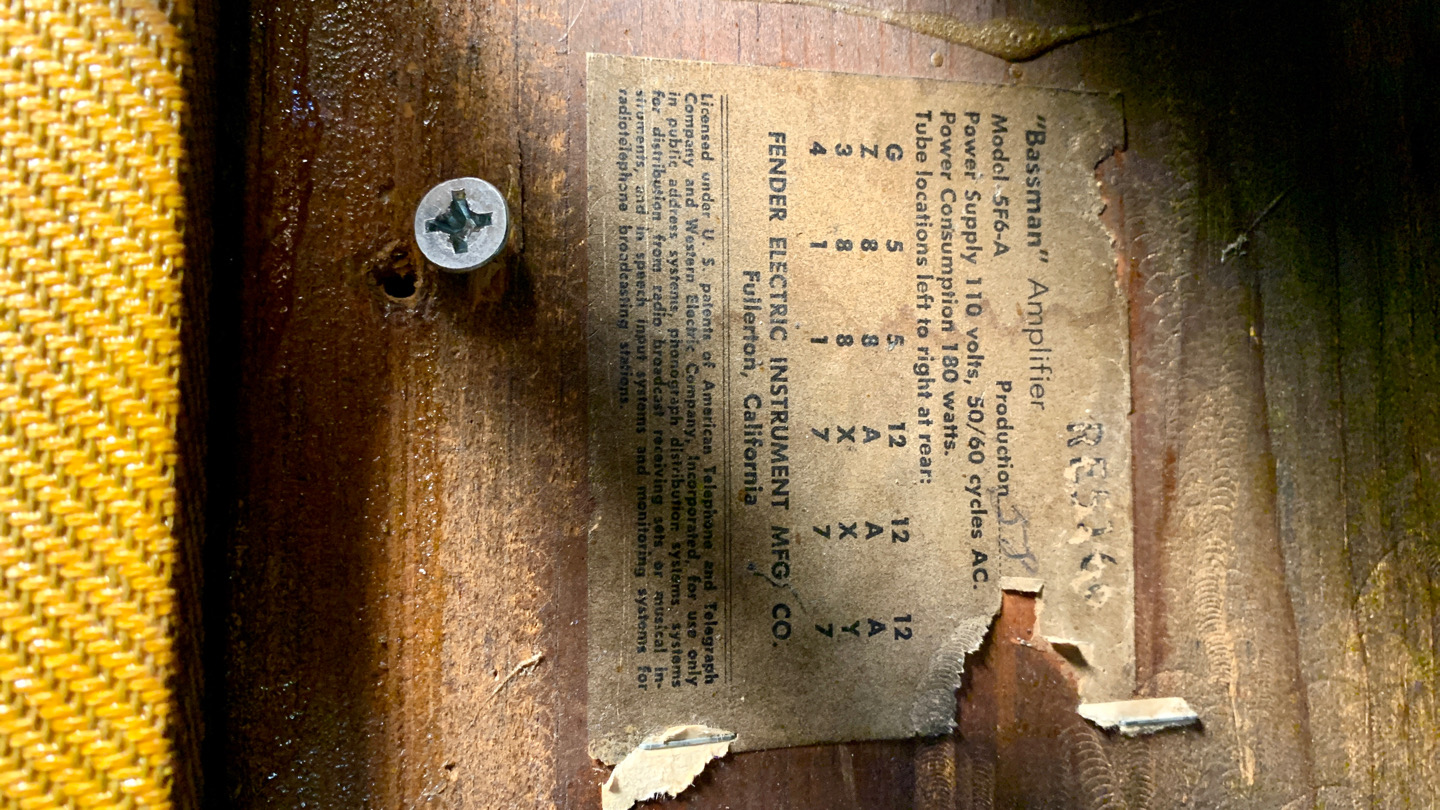 "Bassman" Amplifier
Model 5F6-A Production
Power Supply 110 volts, 50/60 cycles AC.
Power Consumption 180 watts.
Tube locations left to right at rear:
G 5 5 12 12 12
Z 8 8 A A A
3 8 8 X X Y
4 1 1 7 7 7
FENDER ELECTRIC INSTRUMENT MFG. CO.
Fullerton, California
Licensed under U. S. patents of American Telephone and Telegraph
Company and Western Electric Company, Incorporated, for use only
in public address systems, phonograph distribution systems, systems
for distribution from radio broadcast receiving sets or musical in-
struments, and in speech input systems and monitoring systems for
radiotelephone broadcasting stations.